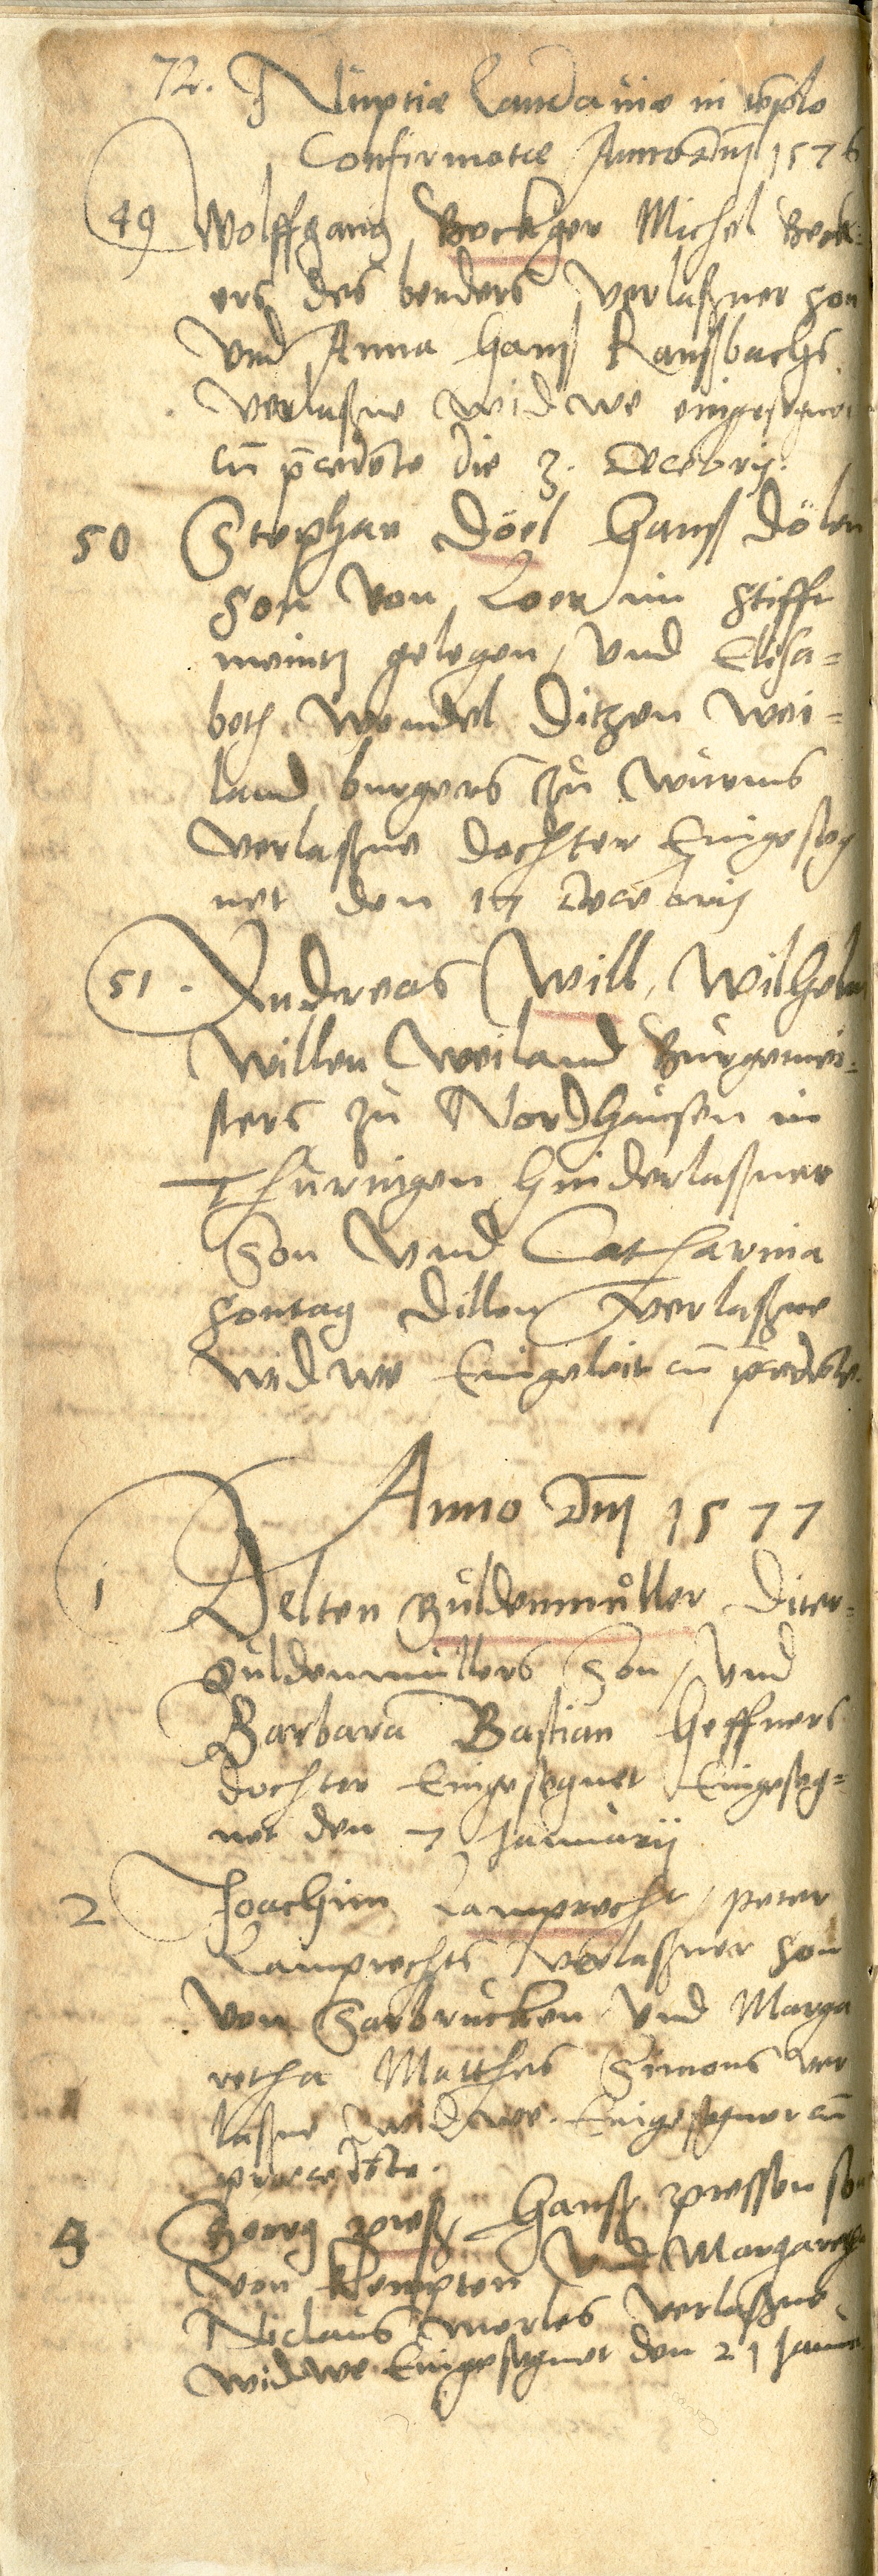 72. Nuptiæ Landaviæ in tēplo
Confirmatæ Anno Dm̄ 1576
49 Wolffgang Beckger Michel Beck-
ers des benders verlaßner son
Vnd Anna Hanß Ranßbachs
verlaßne widwe eingesegnet
cū p̄cedēte die 3. Decēbris.
50 Stephan Döel Hanß Dölen
son von Loer im stifft
meintz gelegen, vnd Elisa=
beth Wendel Ditzen wei=
land burgers zu Wurms
verlaßne dochter Eingeseg
net den 17 Decēbris
51. Andreas Will, Wilhelm
Willen weiland Burgemei=
sters zu Nordhausen in
Thuringen hinderlaßner
Son vnd Catharina
sontag Dillen verlaßne
widwe Eingeleit cū p̄cedēte.
Anno Dm̄ 1577
1 Velten Guldenmüller Diter=
Guldenmullers Son, vnd
Barbara Bastian Heffners
dochter Eingesegnet Eingeseg=
net den 7 Januarij
2 Joachim Lamprecht, peter
Lamprechts verlaßner son
von Sarbrucken vnd Marga
retha Matthes Simons ver
laßne widwe. Eingesegnet cū
præcedēte.
4 Georg preß, Hanß pressen son
von Kempten vnd Margareth
Niclaus merles verlaßne
widwe Eingesegnet den 21 Janua